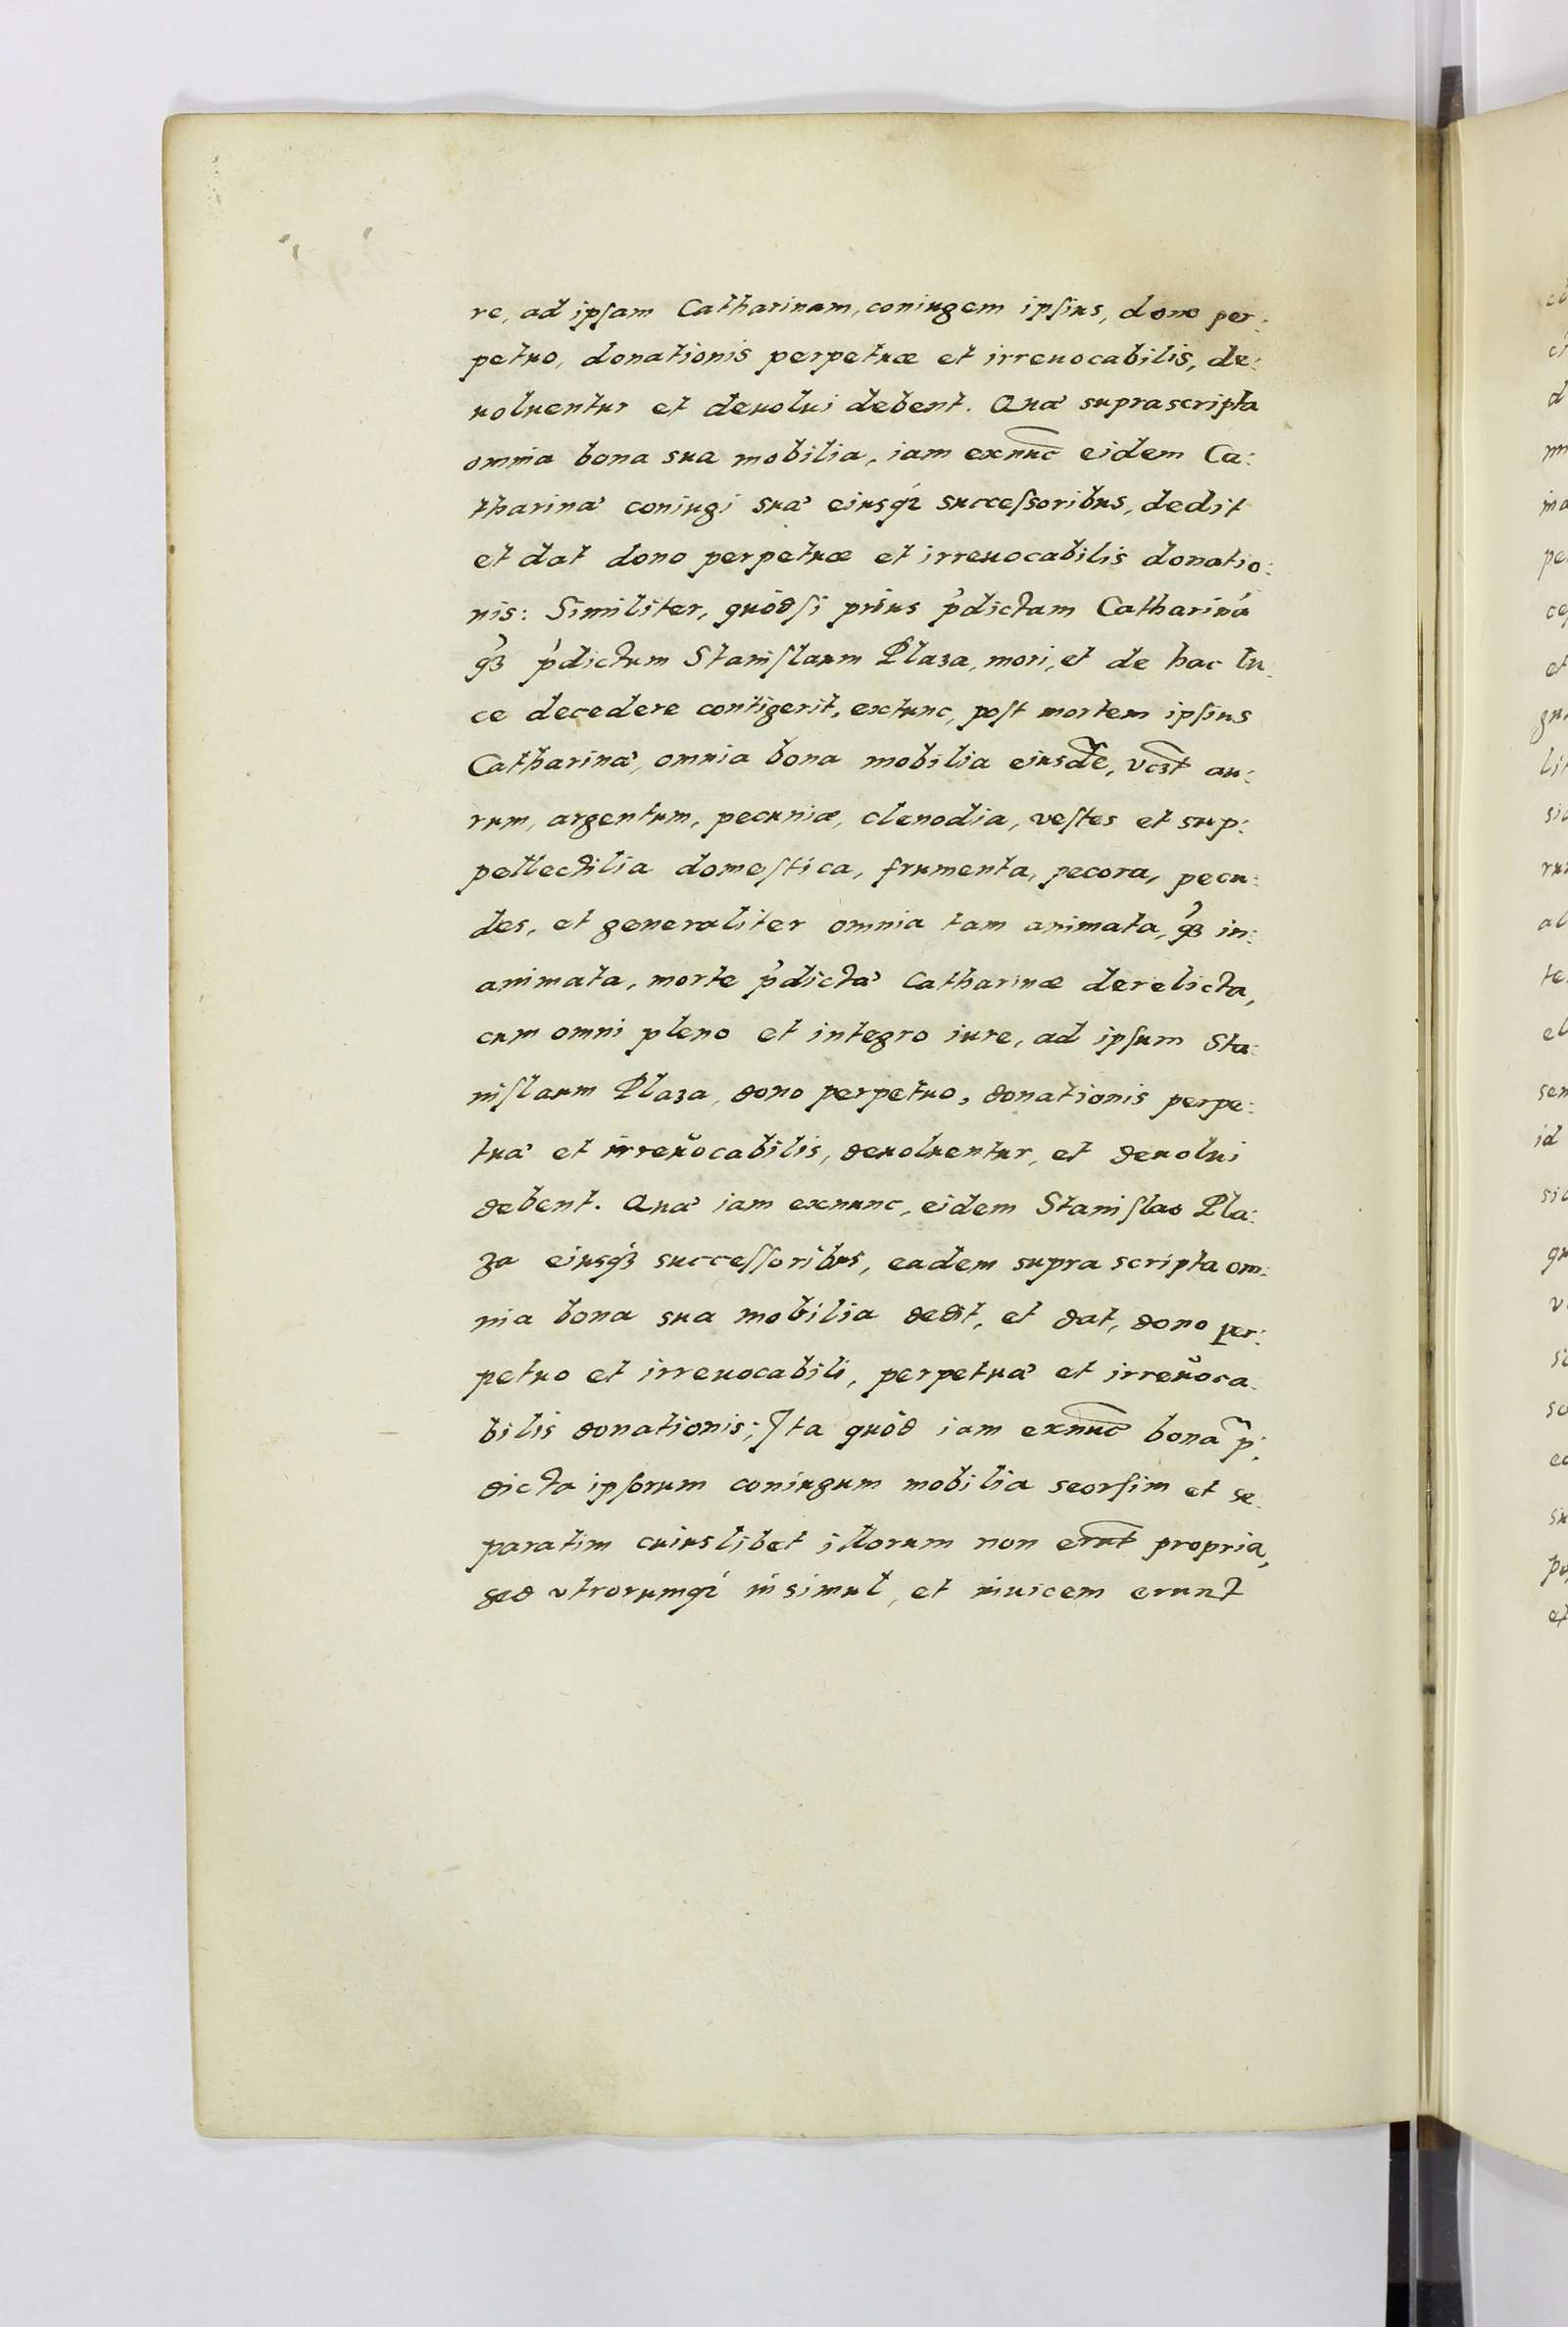 re, ad ipſam Catharinam, coniugem ipſius, dono per:
petuo, donationis perpetuæ et irreuocabilis, de:
uoluentur et deuolui debent. Quæ suprascripta
omnia bona sua mobilia, iam exnūc eidem Ca:
tharinæ coniugi suæ eiusq́ꝫ succeſsoribus, dedit
et dat dono perpetuæ et irreuocabilis donatio:
nis: Similiter, quòd ſi prius p̓dictam Catharinã
q̓ꝫ p̓dictum Staniſlaum Plaza, mori, et de hac lu:
ce decedere contigerit, extunc, poſt mortem ipſius
Catharinæ, omnia bona mobilia eiusdē, vcꝫt au:
rum, argentum, pecuniæ, clenodia, veſtes et sup:
pellectilia domeſtica, frumenta, pecora, pecu:
des, et generaliter omnia tam animata, q̓ꝫ in:
animata, morte p̓dictæ Catharinæ derelicta,
cum omni pleno et integro iure, ad ipſum Sta:
niſlaum Plaza, dono perpetuo, donationis perpe:
tuæ et irreuocabilis, deuoluentur, et deuolui
debent. Quæ iam exnunc, eidem Staniſlao Pla:
za eiusq́ꝫ succeſſoribus, eadem supra scripta om:
nia bona sua mobilia dedit, et dat, dono per:
petuo et irreuocabili, perpetuæ et irreuoca:
bilis donationis; Ita quòd iam exnūc bona p̄:
dicta ipſorum coniugum mobilia seorſim et se:
paratim cuiuslibet illorum non erūt propria,
sed vtrorumq́ꝫ insimul, et inuicem erunt